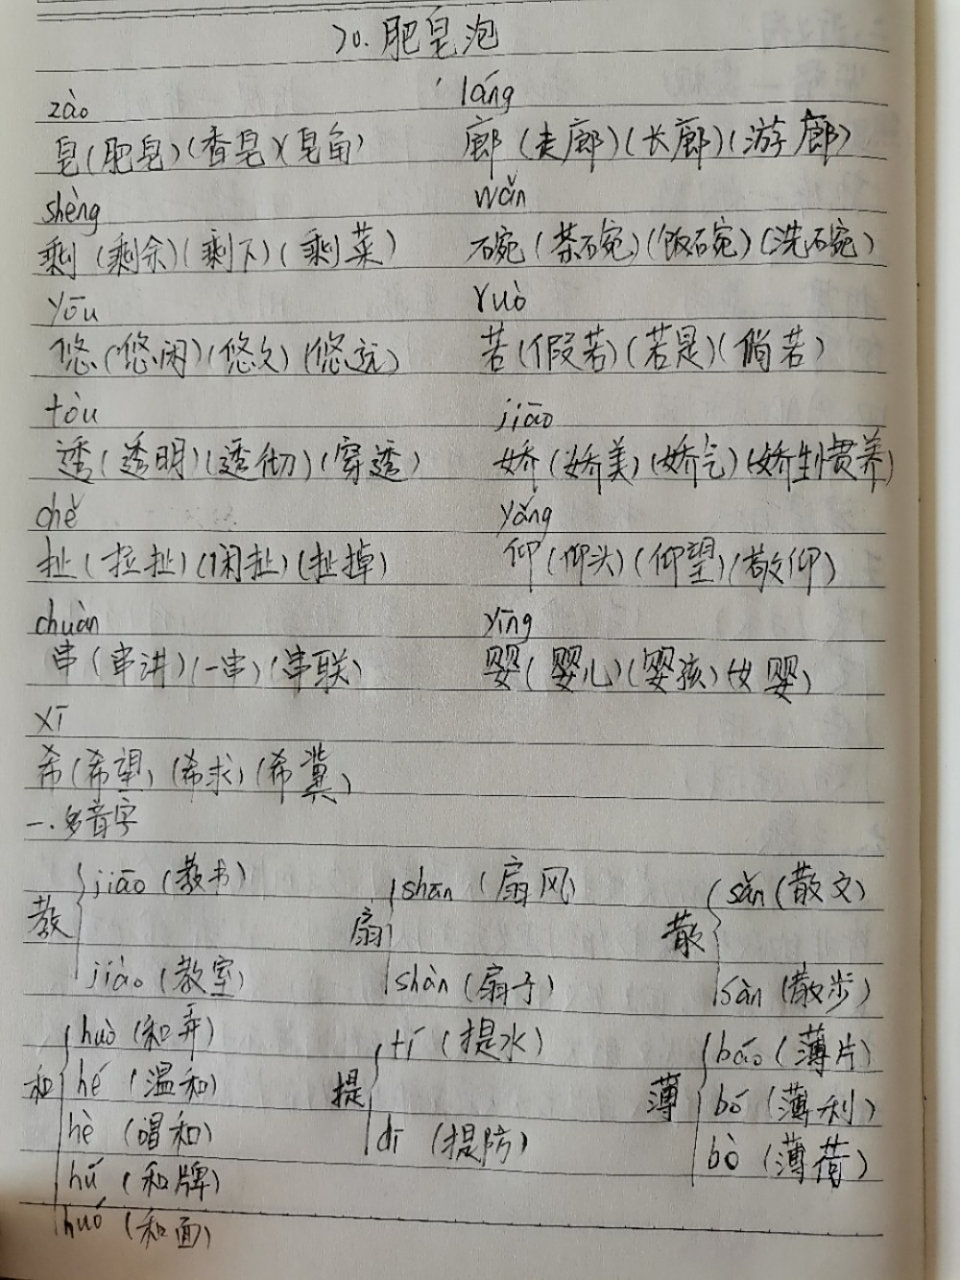 20.肥皂泡
zào láng
皂(肥皂)(香皂)(皂角) 廊(走廊)(长廊)(游廊)
shèng wǎn
剩(剩余)(剩下)(剩菜) 碗(茶碗)(饭碗)(洗碗)
yōu ruò
悠(悠闲)(悠久)(悠远) 若(假若)(若是)(倘若)
tòu jiāo
透(透明)(透彻)(穿透) 娇(娇美)(娇气)(娇生惯养)
chě yǎng
扯(拉扯)(闲扯)(扯掉) 仰(仰头)(仰望)(敬仰)
chuàn yīng
串(串讲)(一串)(串联) 婴(婴儿)(婴孩)(女婴)
xī
希(希望)(希求)(希冀)
一.多音字
jiāo(教书) shān(扇风) sǎn(散文)
教 扇 散
jiào(教室) shàn(扇子) sàn(散步)
huò(和弄) tí(提水) báo(薄片)
和 hé(温和) 提 薄 bó(薄利)
hè(唱和) dī(提防) bò(薄荷)
hú(和牌)
huó(和面)